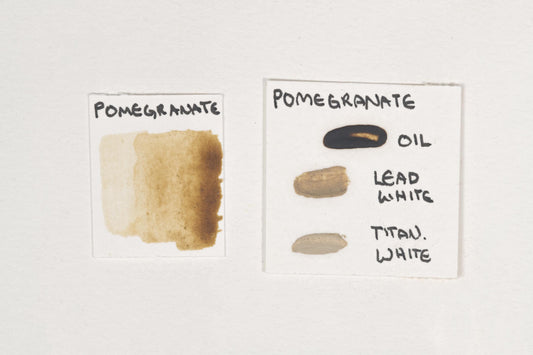 POMEGRANATE
POMEGRANATE
OIL
LEAD
WHITE
TITAN.
WHITE